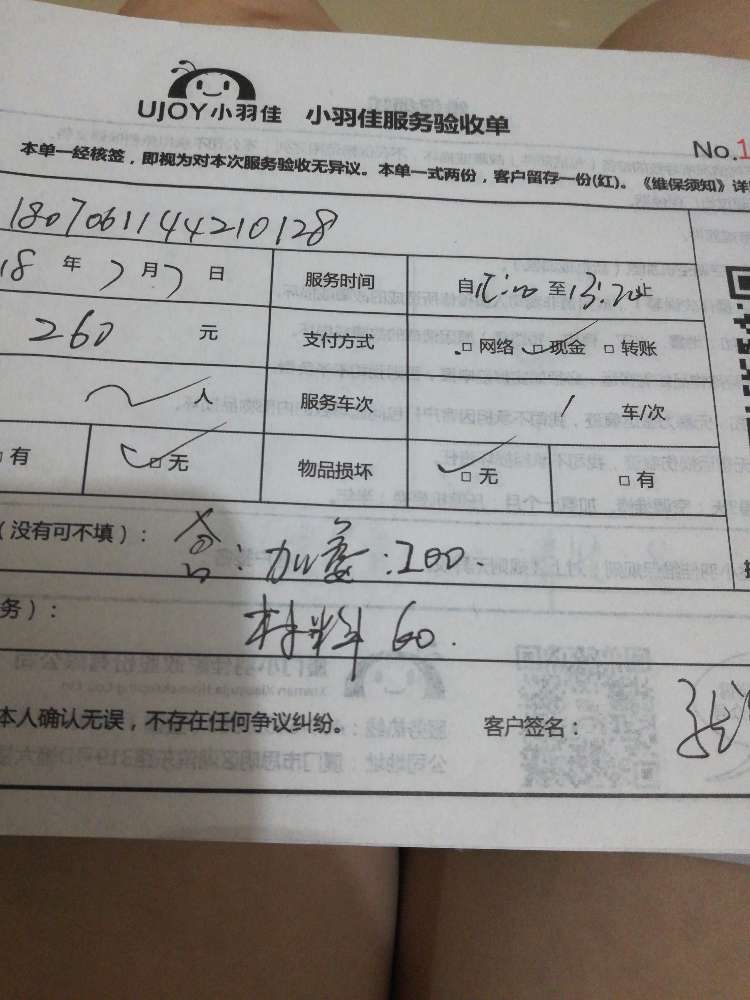 UJOY小羽佳 小羽佳服务验收单
No.1
本单一经核签，即视为对本次服务验收无异议。本单一式两份，客户留存一份(红)。《维保须知》详
1807061144210128
18 年 7 月 7 日 服务时间 自 至 止
260 元 支付方式 □ 网络 □ 现金 □ 转账
人 服务车次 1 车/次
□ 有 □ 无 物品损坏 □ 无 □ 有
（没有可不填）： 含：加氟：200.
务）： 材料 60.
本人确认无误，不存在任何争议纠纷。 客户签名：